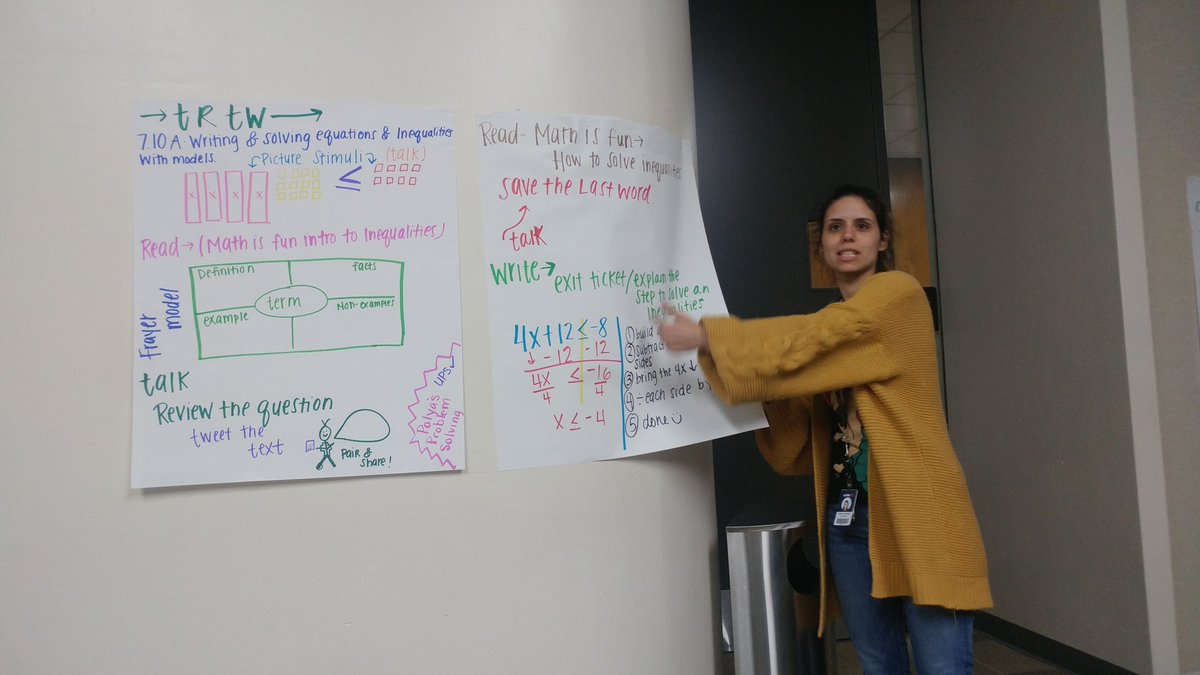 → tRtW →
7.10 A. Writing & solving equations & Inequalities
with models.
Picture Stimuli (talk)
x x x x ≤
Read → (Math is fun intro to Inequalities)
Frayer model
Definition facts
term
example Non-examples
talk
Review the question
tweet the
text
Pair &
share!
Polya's
Problem
Solving
UPS
Read - Math is fun →
How to solve inequalities
save the Last word
talk
write → exit ticket/explain the
step to solve an
inequalities
4x+12 ≤ -8
↓ -12 -12
4x ≤ -16
4 4
x ≤ -4
① build
② subtract
sides
③ bring the 4x ↓
④ ÷ each side
⑤ done